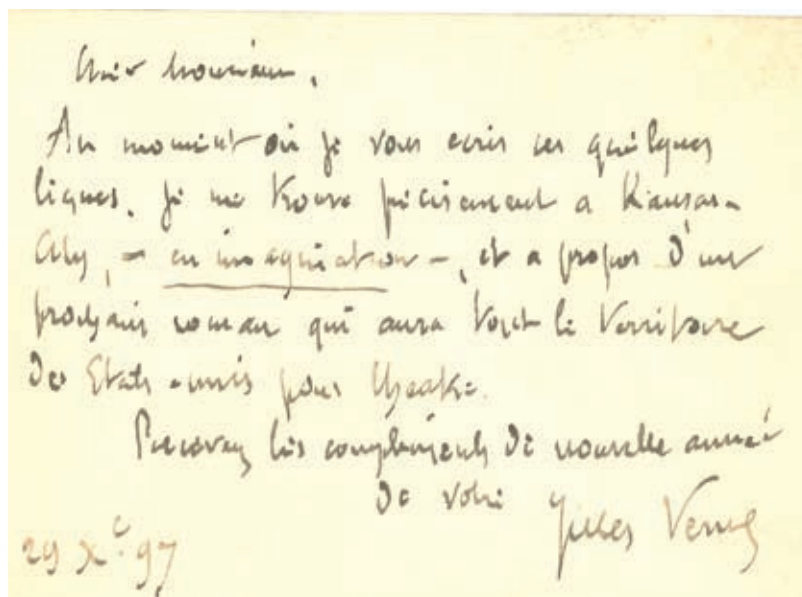 Cher Monsieur,
Au moment où je vous écris ces quelques
lignes, je me trouve précisément a Kansas-
City, – en imagination –, et a propos d'un
prochain roman qui aura tout le territoire
des Etats-unis pour theatre.
Recevez les compliments de nouvelle année
de votre Jules Verne
29 Xe. 97